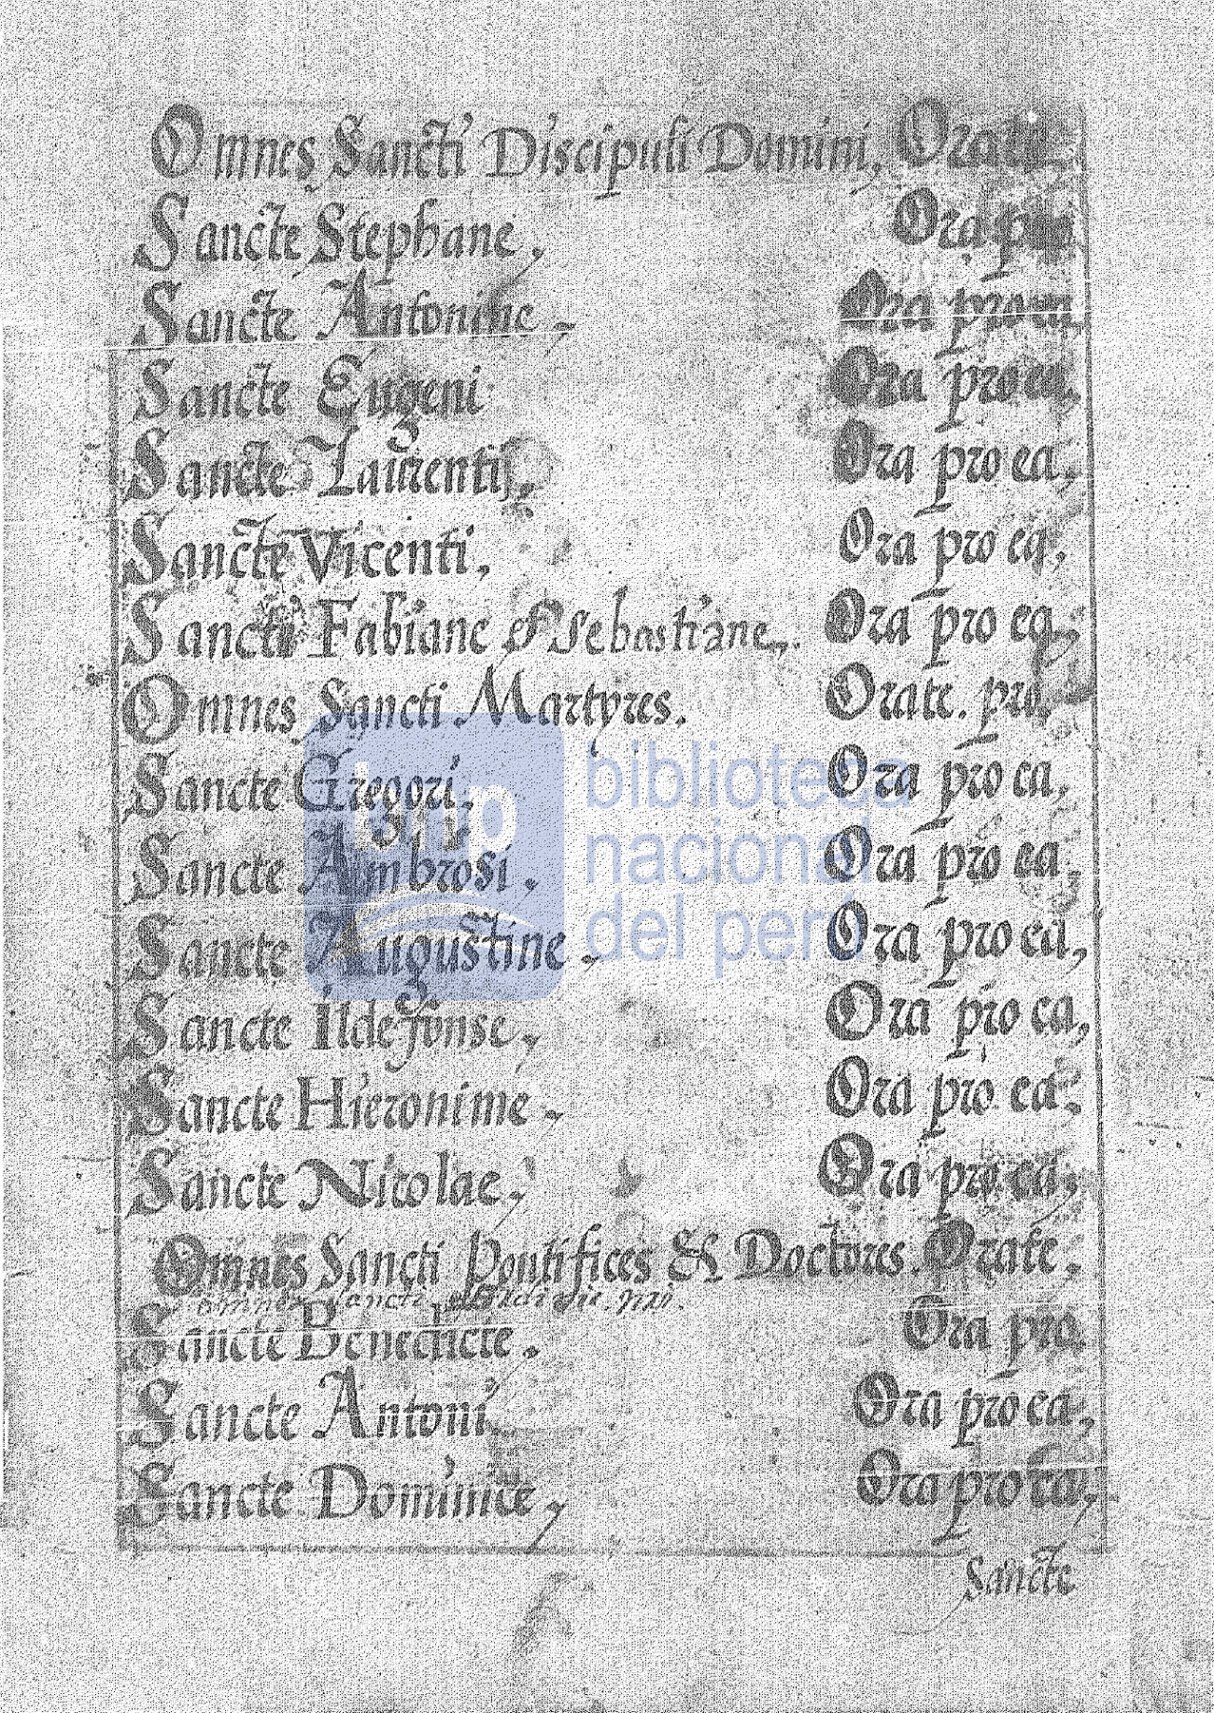 Omnes Sancti Discipuli Domini, Orate
Sancte Stephane, Ora pro
Sancte Antonine, Ora pro ea
Sancte Eugeni Ora pro ea,
Sancte Laurentij, Ora pro ea,
Sancte Vicenti, Ora pro ea,
Sancti Fabiane et Sebastiane, Ora pro ea,
Omnes Sancti Martyres. Orate. pro
Sancte Gregori, Ora pro ea,
Sancte Ambrosi. Ora pro ea
Sancte Augustine, Ora pro ea,
Sancte Ildefonse, Ora pro ea,
Sancte Hieronime, Ora pro ea,
Sancte Nicolae, Ora pro ea,
Omnes Sancti Pontifices & Doctores. Orate.
omnes sancti
Sancte Benedicte. Ora pro
Sancte Antoni Ora pro ea,
Sancte Dominice, Ora pro ea,
Sancte
bnp biblioteca
nacional
del perú